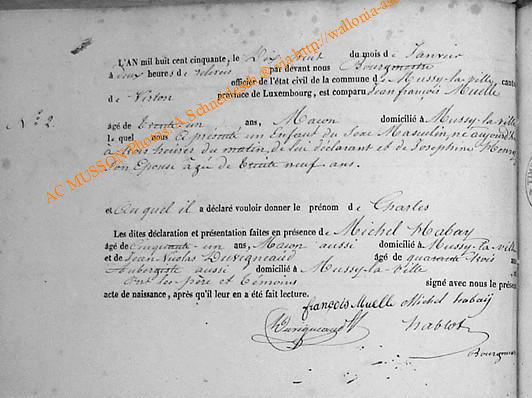 L'AN mil huit cent cinquante, le Dix huit du mois de Janvier
à deux heures de relevée par devant nous Bourgmestre
officier de l'état civil de la commune de Mussy-la-ville, canton
de Virton province de Luxembourg, est comparu Jean françois Muelle
N.° 2.
âgé de trente un ans, Maçon domicilié à Mussy-la-ville
le quel nous a présenté un Enfant du Sexe Masculin, né aujourd'hui
à trois heures du matin, de lui déclarant et de Josephine Henry
son Epouse âgée de trente neuf ans.
et auquel il a déclaré vouloir donner le prénom de Charles
Les dites déclaration et présentation faites en présence de Michel Habay
âgé de Cinquante un ans, Maçon aussi domicilié à Mussy-la-ville
et de Jean Nicolas Duvigneaud âgé de quarante trois ans
Aubergiste aussi domicilié à Mussy-la-ville
Ont les père et témoins signé avec nous le présent
acte de naissance, après qu'il leur en a été fait lecture.
françois Muelle Michel habaÿ
Duvigneaud
Bourgmes
AC MUSSON Photos A Schneidesch @ via http://wallonia-as